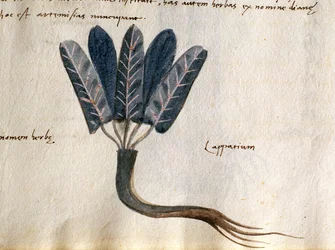 institit, has autem herbas ex nomine dianę
hoc est artemisias nuncupant.
nomen herbę
Lappatium